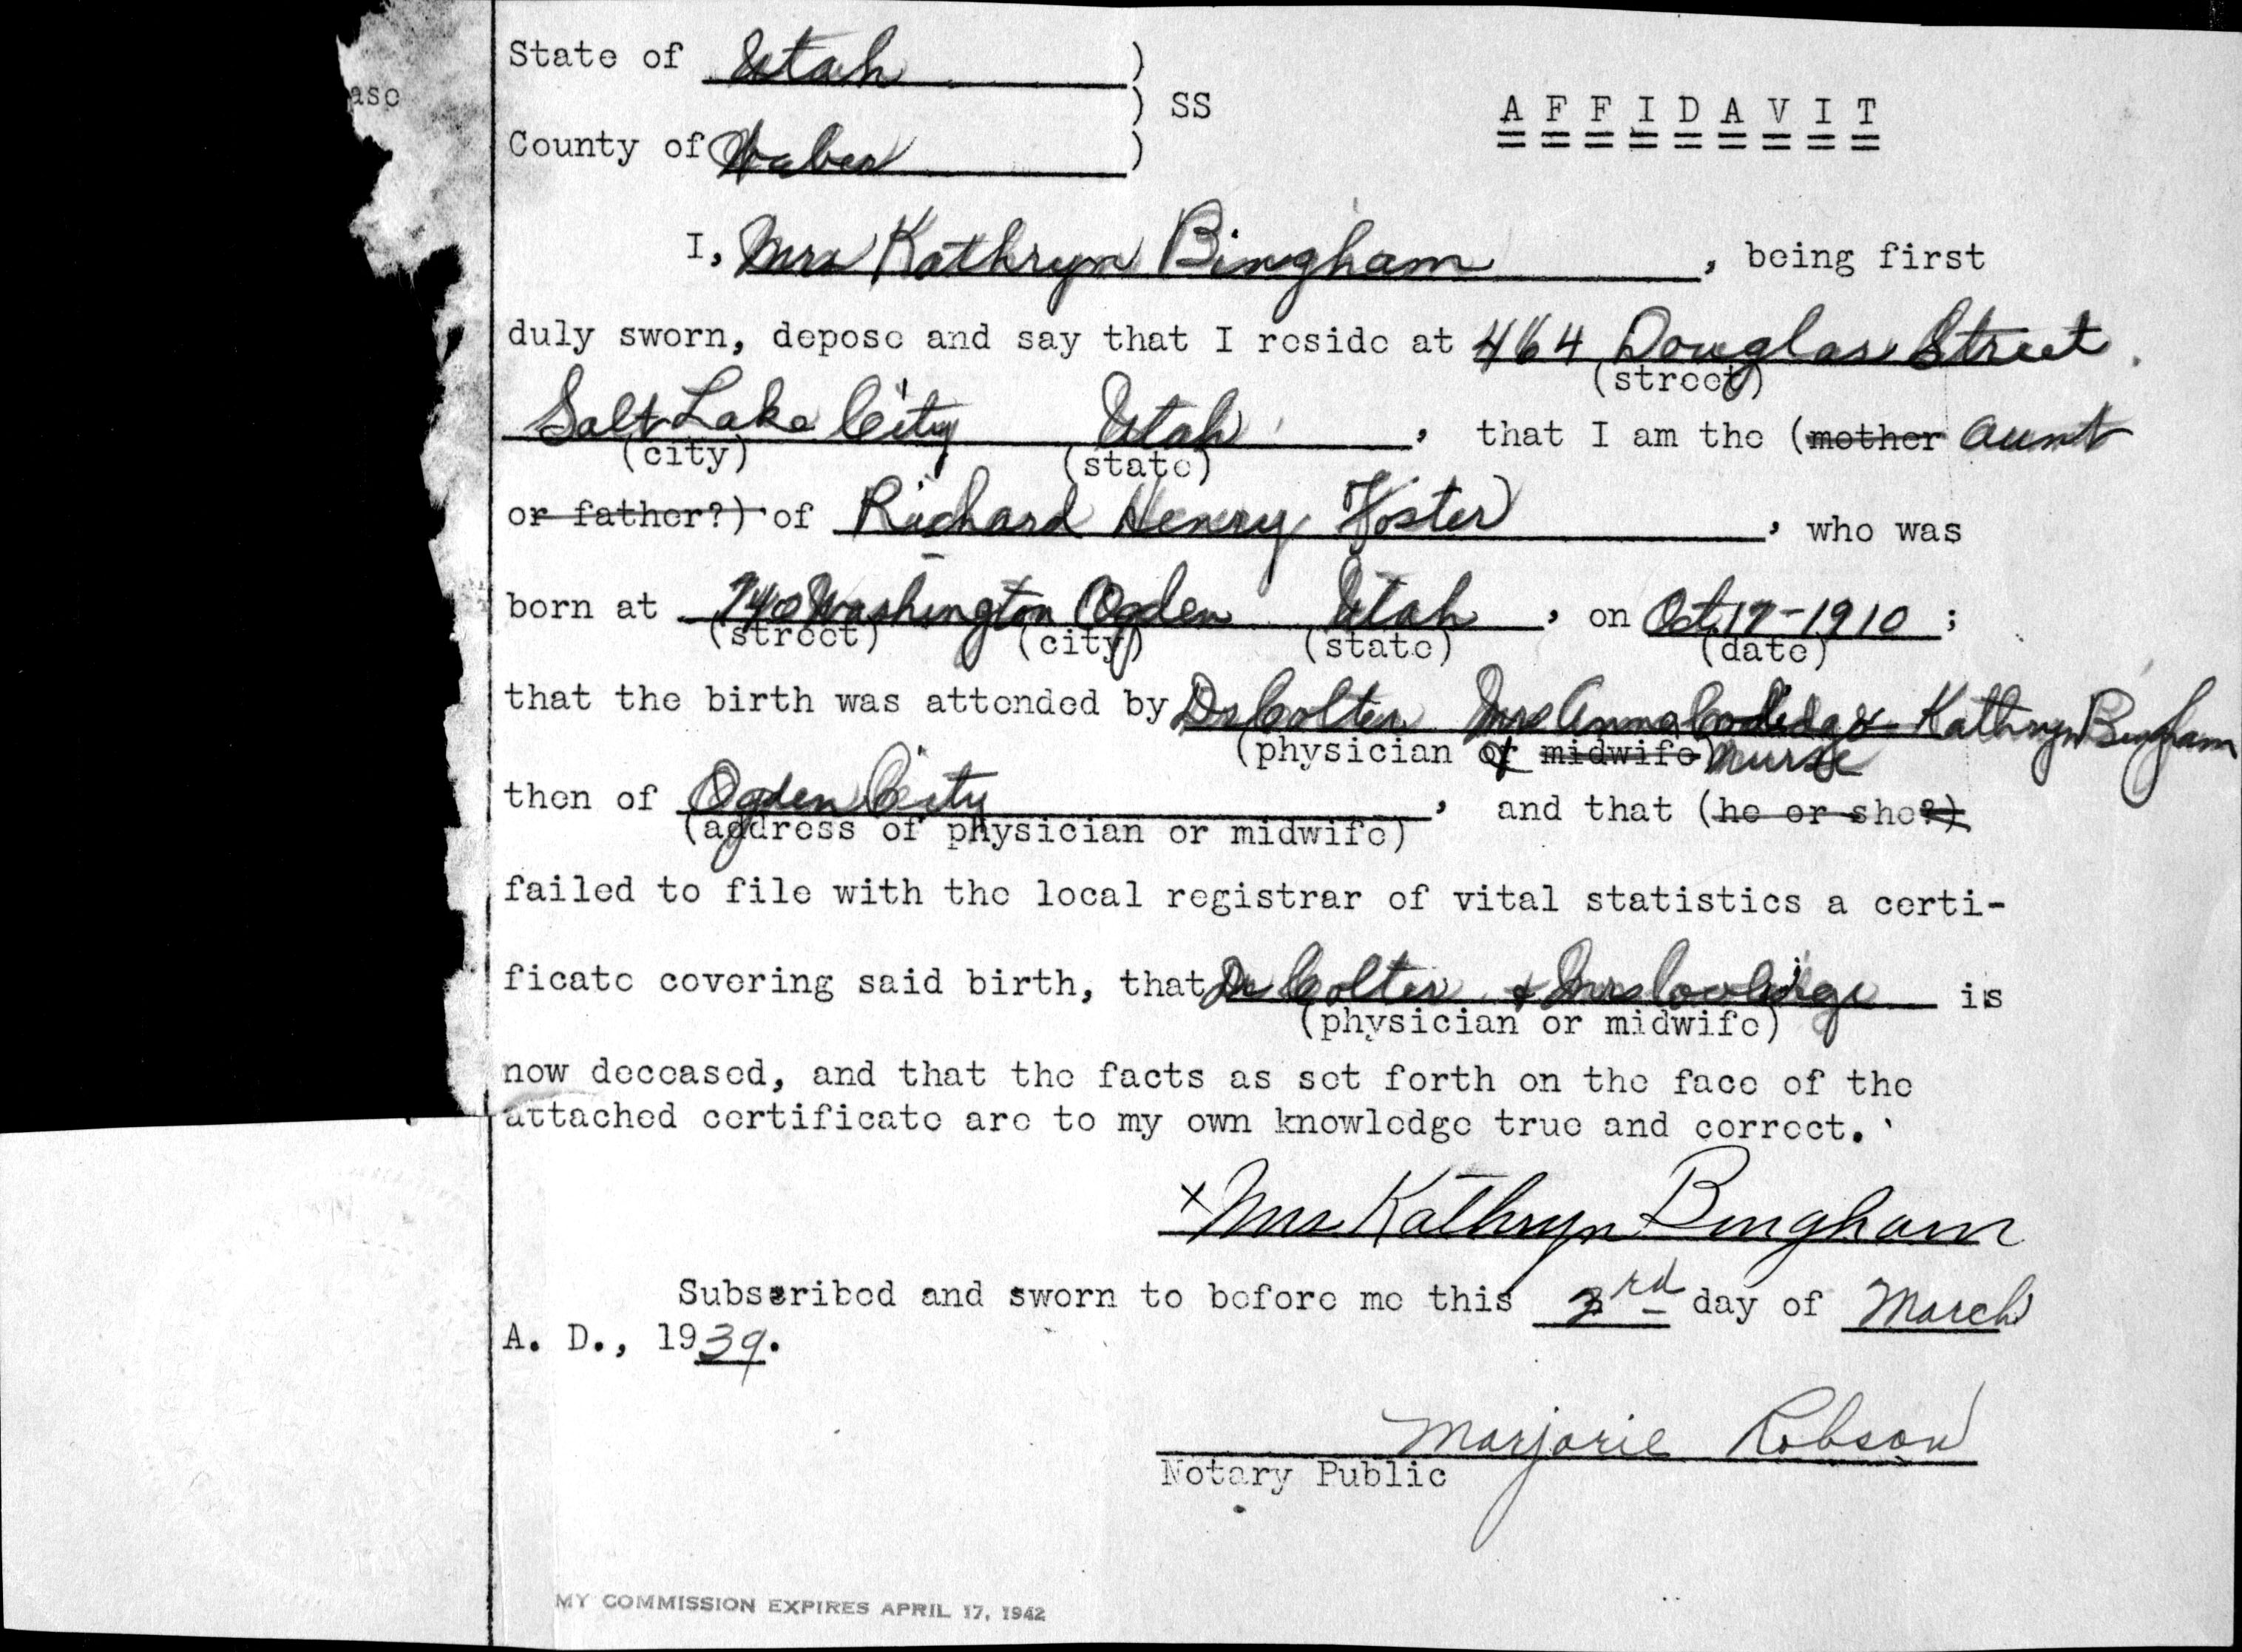 State of Utah )
asc ) SS A F F I D A V I T
County of Weber )
I, Mrs Kathryn Bingham , being first
duly sworn, depose and say that I reside at 464 Douglas Street
(street)
Salt Lake City Utah , that I am the (mother aunt
(city) (state)
or father?) of Richard Henry Foster , who was
born at 740 Washington Ogden Utah , on Oct 17-1910 ;
(street) (city) (state) (date)
that the birth was attended by Dr Colter Mrs Anna & Kathryn Bingham
(physician or midwife) nurse
then of Ogden City , and that (he or she?)
(address of physician or midwife)
failed to file with the local registrar of vital statistics a certi-
ficate covering said birth, that Dr Colter & Mrs is
(physician or midwife)
now deceased, and that the facts as set forth on the face of the
attached certificate are to my own knowledge true and correct.
x Mrs Kathryn Bingham
Subscribed and sworn to before me this 3rd day of March
A. D., 1939.
Marjorie Robson
Notary Public
MY COMMISSION EXPIRES APRIL 17, 1942